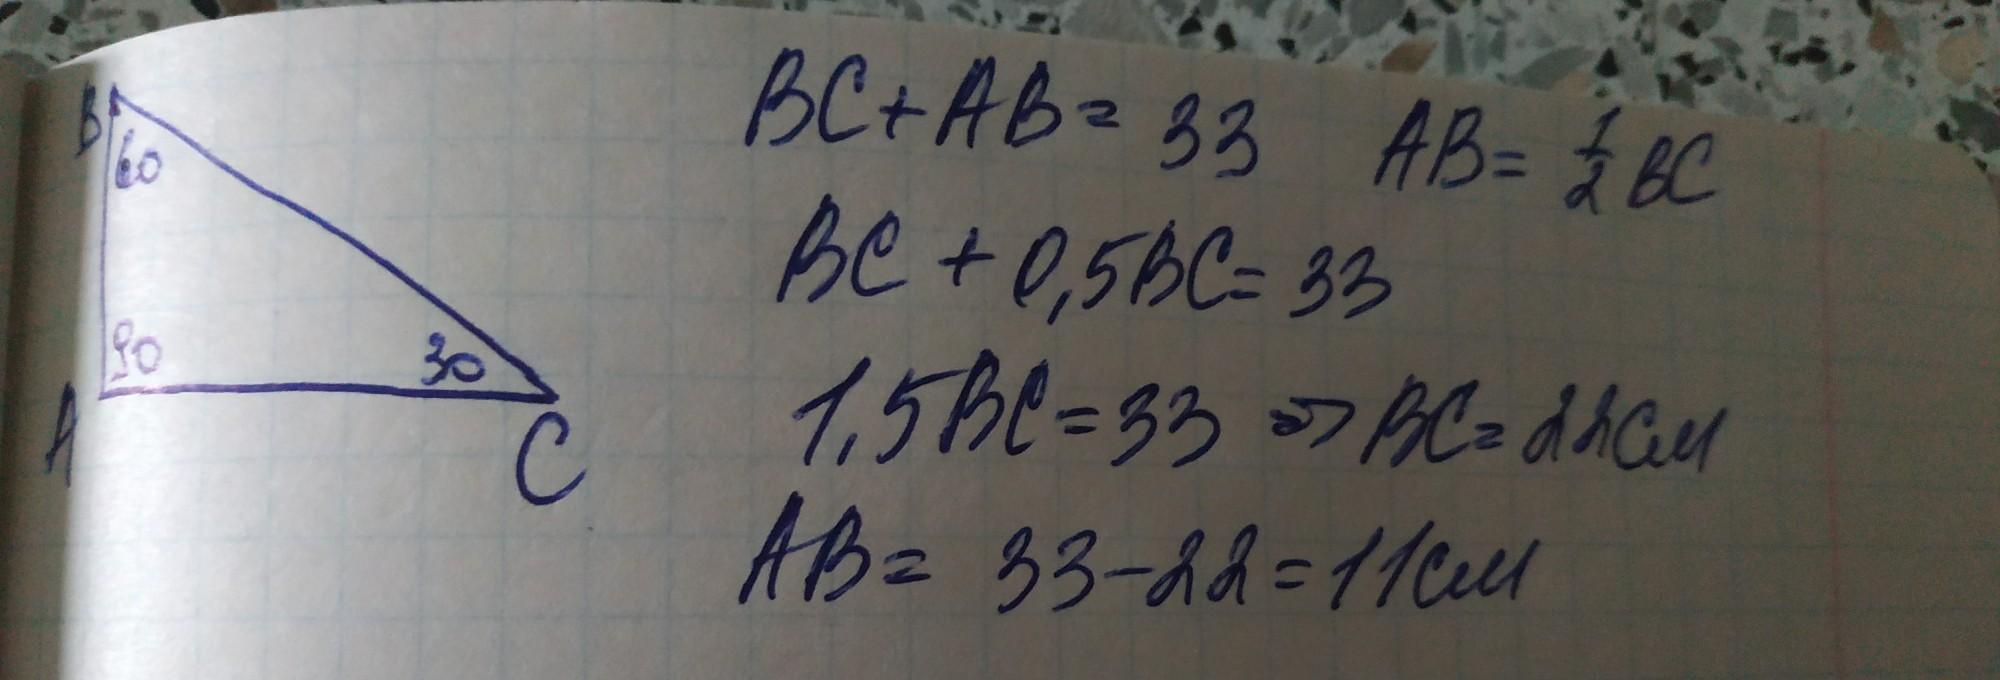 B
60
90
30
A
C
BC + AB = 33 AB = 1/2 BC
BC + 0,5BC = 33
1,5BC = 33 => BC = 22см
AB = 33 - 22 = 11см